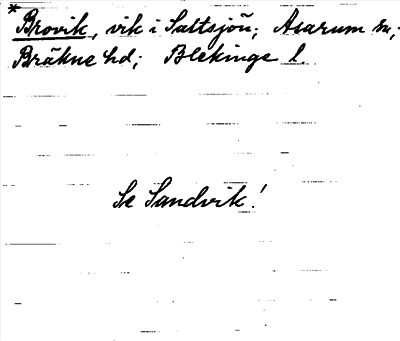 *
Brovik, vik i Saltsjön; Asarum sn;
Bräkne hd; Blekinge l.
Se Sandvik!